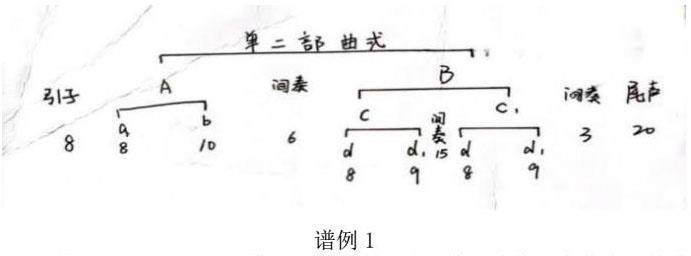 单二部曲式
引子 A 间奏 B 间奏 尾声
a b C 间奏 C₁
8 8 10 6 d d₁ 15 d d₁ 3 20
8 9 8 9
谱例 1